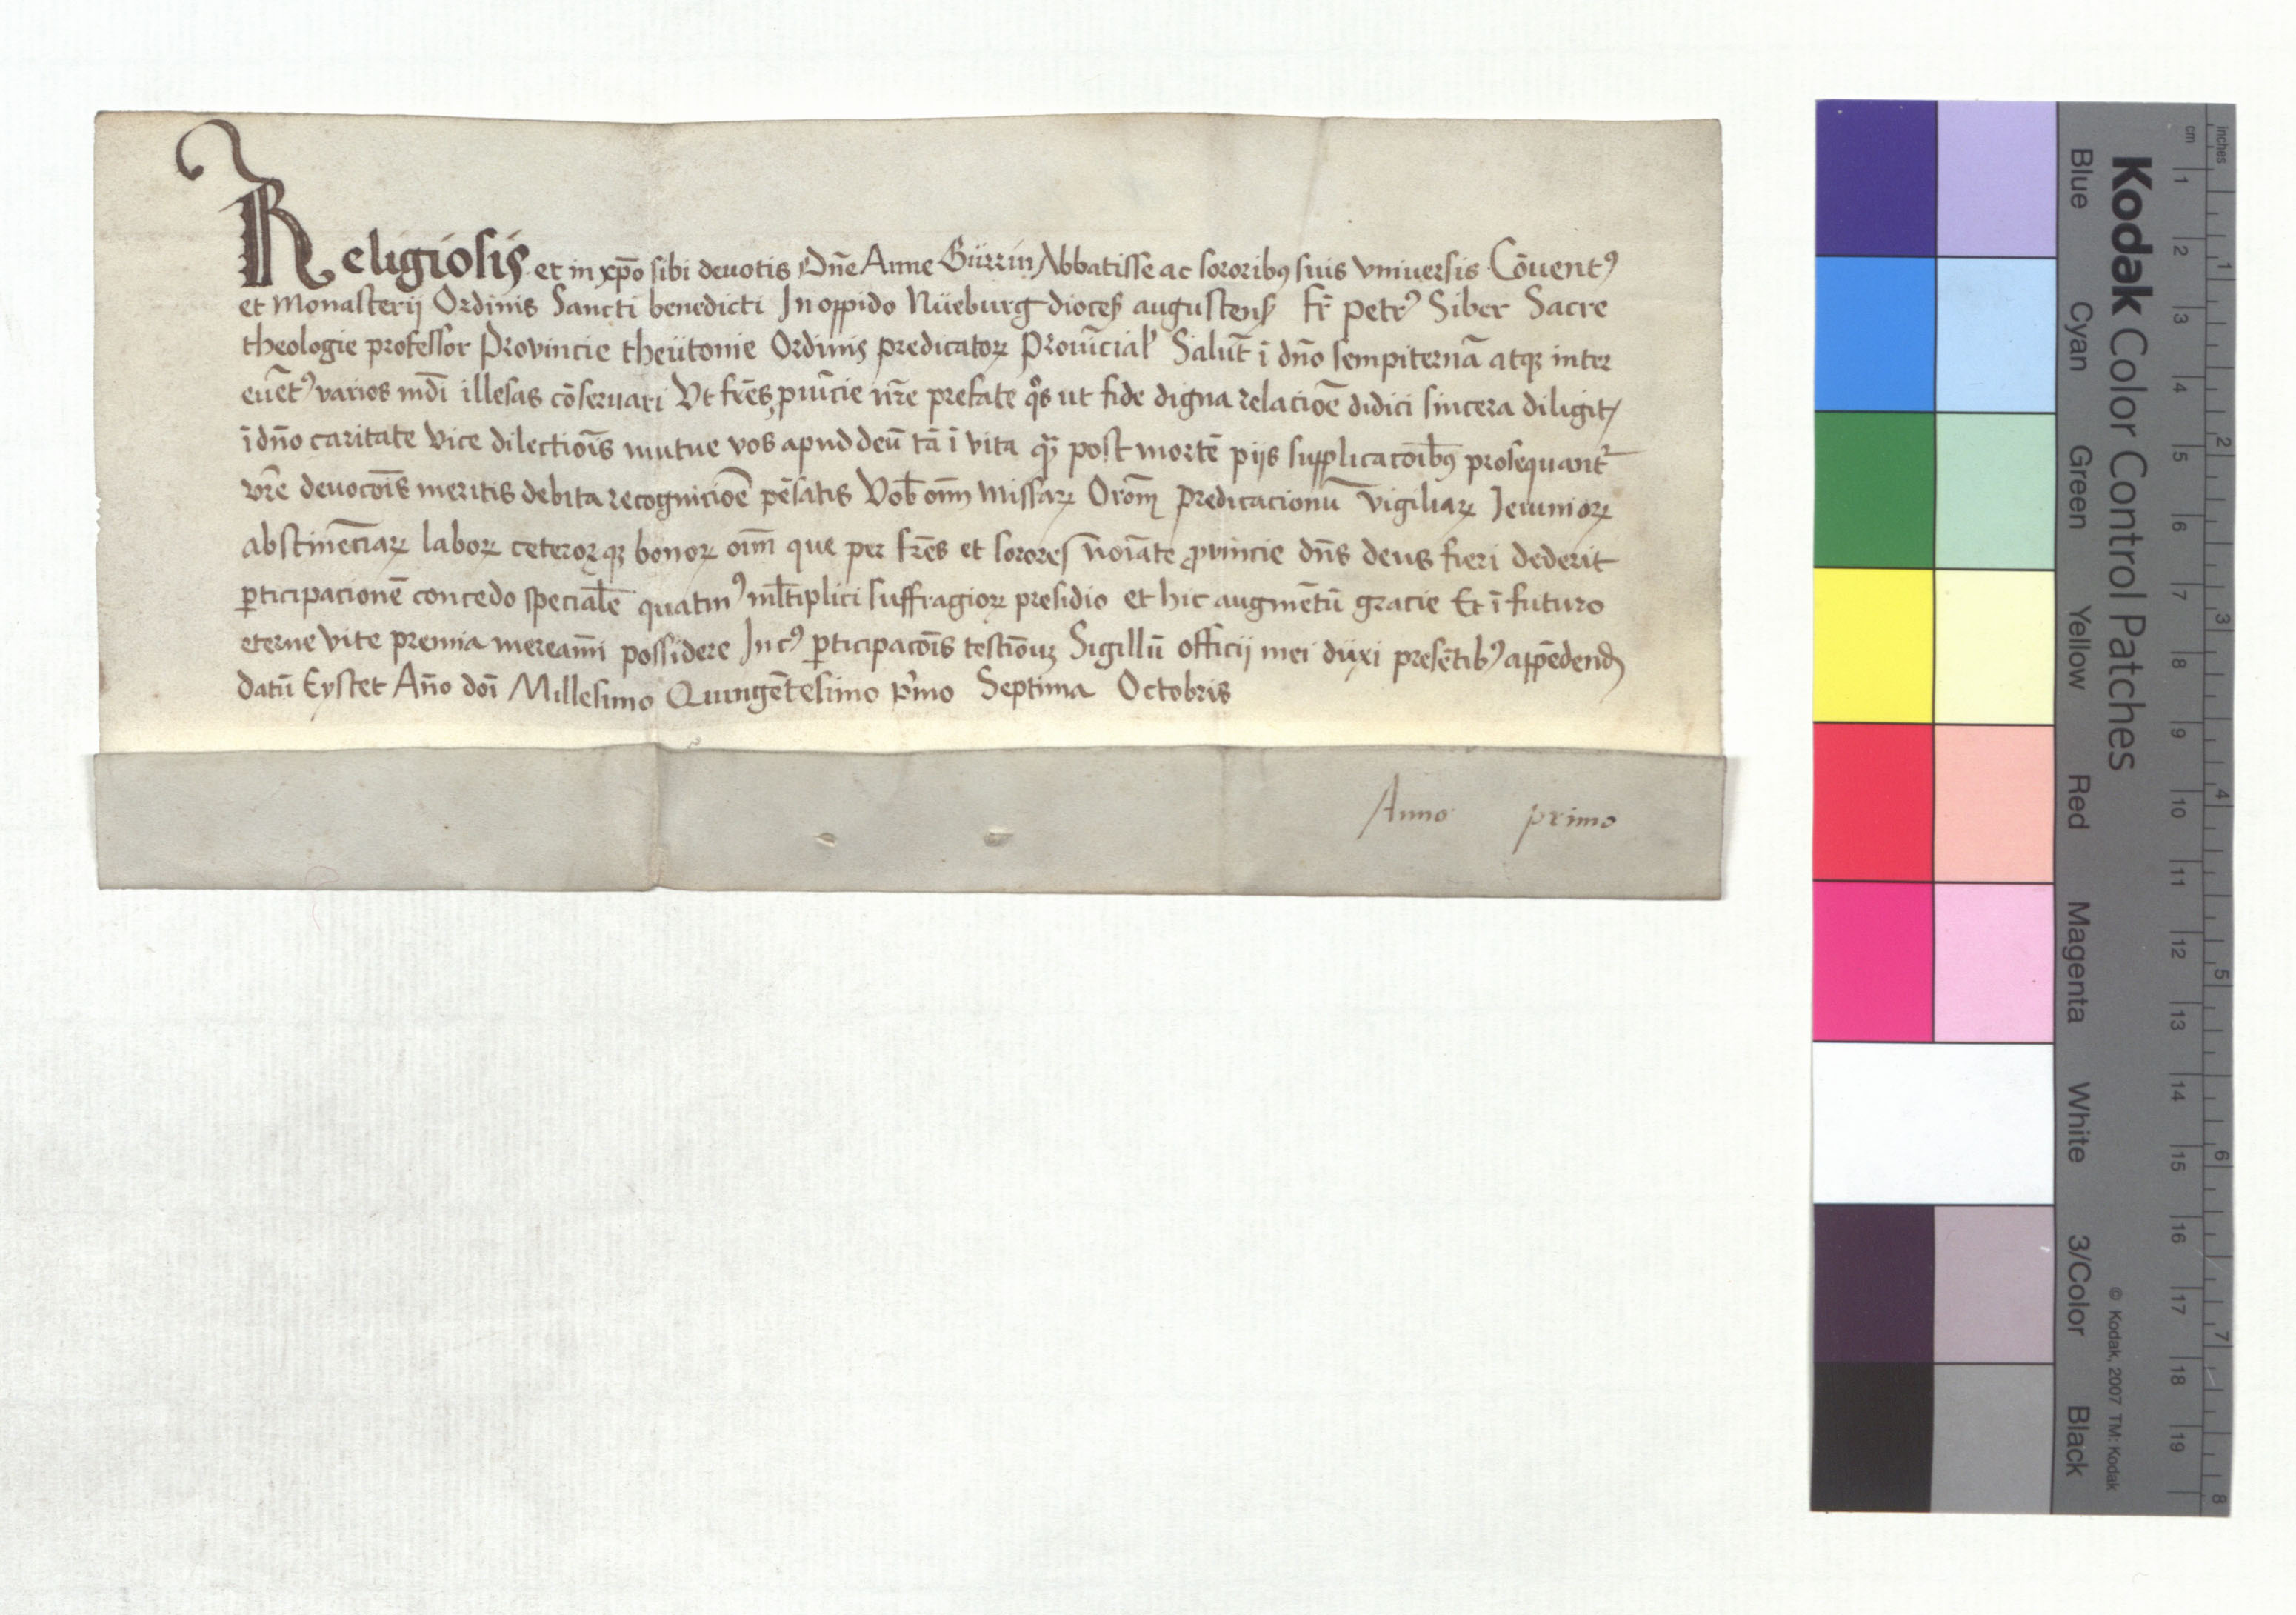 Religiosis et in xp̄o sibi deuotis Dn̄e Anne Bürrin Abbatisse ac sororibꝰ suis vniuersis Cōuentꝰ
et Monasterij Ordinis Sancti benedicti In oppido Nüeburg dioceß augustenß fr̄ petrꝰ Siber Sacre
theologie professor Provincie theütonie Ordinis predicatorꝝ Prouīcial Salut̄ ī dn̄o sempiternā atqꝫ inter
euēt̄ꝰ varios mūdi illesas cōseruari Vt frēs ꝓuīcie nr̄e prefate qͦs ut fide digna relaciōe didici sincera diligit
ī dn̄o caritate vice dilectiōis mutue vos apud deū tā ī vita qꝫ post mortē pijs supplicacōibꝰ prosequant᷑
vr̄e deuocōis meritis debita recogniciōe pēsatis Vob̄ om̄ missaꝝ Orōm̄ predicacionū vigiliaꝝ Ieiunioꝝ
abstinēciaꝝ laboꝝ ceteroꝝqꝫ bonoꝝ oīm̄ que per frēs et sorores n̄oīate ꝓvincie dn̄s deus fieri dederit
ꝑticipacionē concedo specialē quatinꝰ ml̄tiplici suffragioꝝ presidio et hic augmētū gracie Et ī futuro
eterne vite premia meream̄i possidere In cꝰ ꝑticipacōis testīoīuꝫ Sigillū officij mei düxi presētibꝰ appēdend
datū Eystet An̄o dōi Millesimo Quingētesimo pͥmo Septima Octobris
Anno primo
Kodak Color Control Patches
Blue Cyan Green Yellow Red Magenta White 3/Color Black
© Kodak, 2007 TM: Kodak
cm 1 2 3 4 5 6 7 8 9 10 11 12 13 14 15 16 17 18 19
inches 1 2 3 4 5 6 7 8